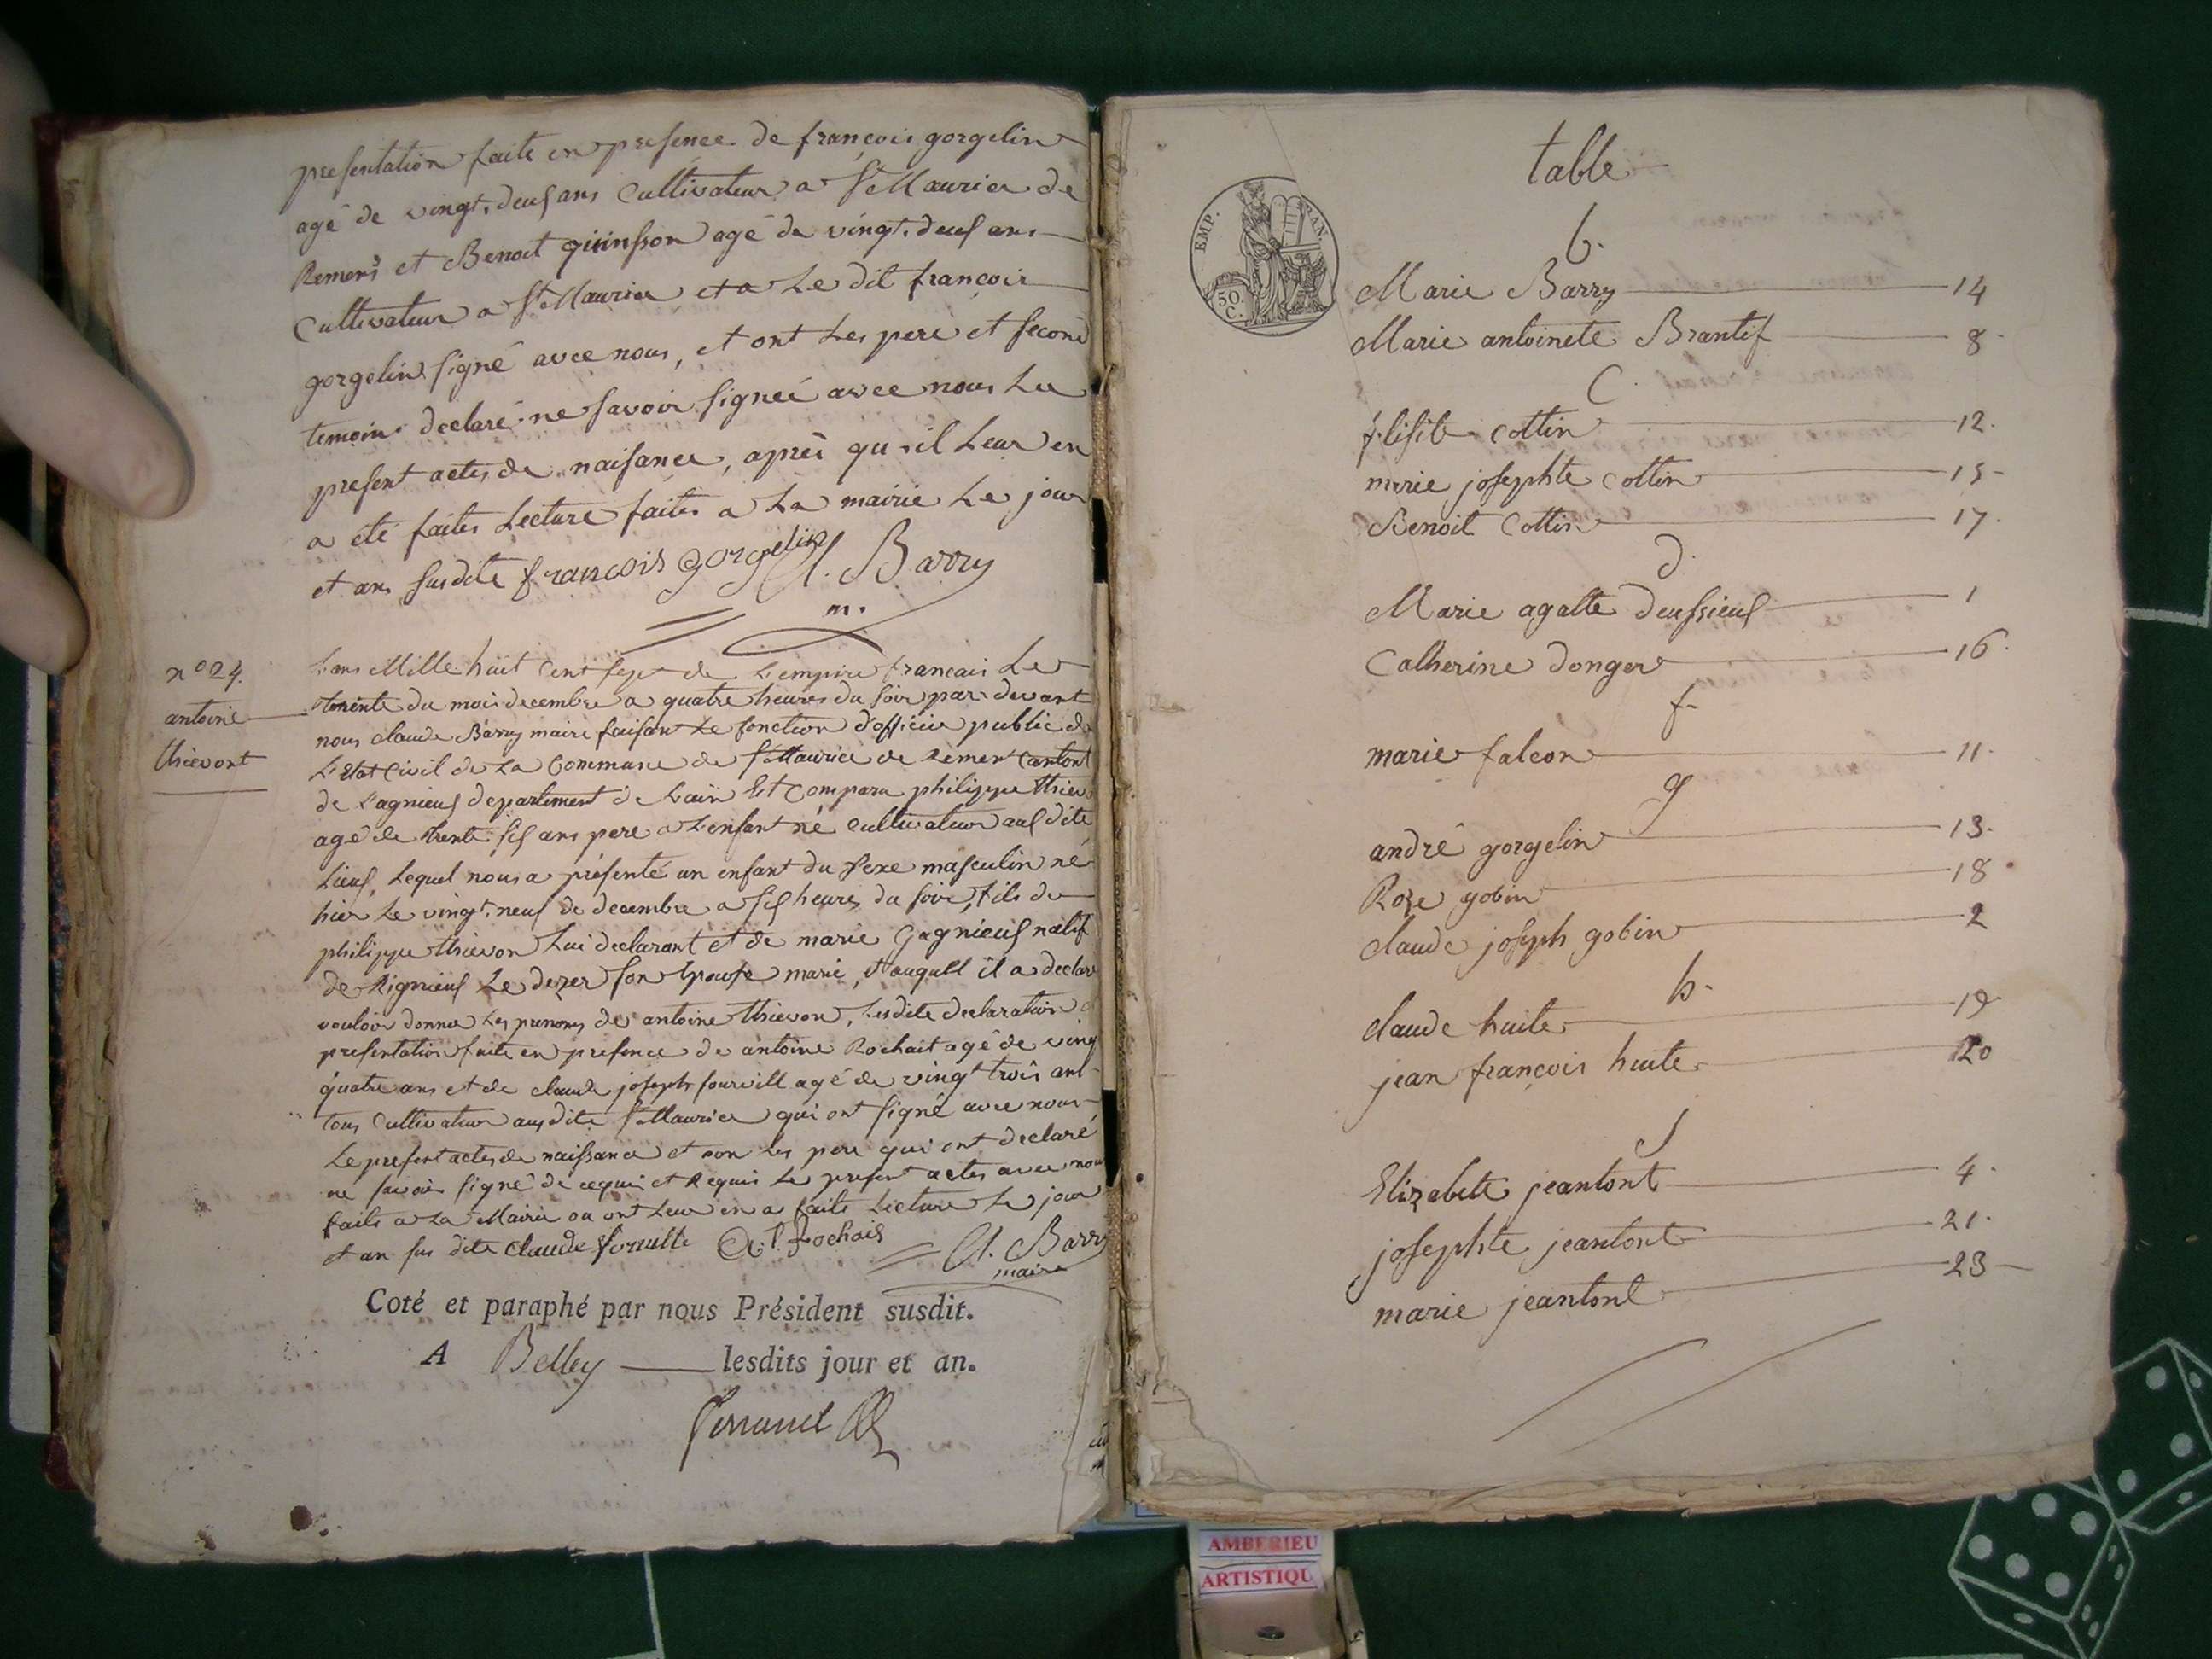 presentation faite en presence de françois gorgelin
agé de vingt deux ans Cultivateur a St Maurice de
Remens et Benoit quinsson agé de vingt deux ans
Cultivateur a St Maurice et a Le dit françois
gorgelin signé avec nous, et ont Les pere et second
temoins declaré ne savoir signeé avec nous Le
present actes de naisance, aprés qu'il Leur en
a été faites Lecture faites a La mairie Le jour
et ans susdite françois gorgelin Cl. Barry
m.
n° 24.
antoine
thievont
L'ans Mille huit Cent sept de L'empire francais Le
trente du mois decembre a quatre heures du soir par devant
nous claude Barry maire faisant Le fonction d'officie public de
L'Etat Civil de La Commune de St Maurice de Remens Cantont
de Lagnieus departement de Lain Est Comparu philippe thiev
agé de trente six ans pere a L'enfant né Cultivateur aus dite
Lieus, Lequel nous a présenté un enfant du sexe masculin né
hier Le vingt neuf de decembre a six heures du soir, fils de
philippe thievon Lui declarant et de marie Gagnieus natif
de Rignieus Le dezer son Epouse marié, et auquell il a declaré
vouloir donner Les prenoms de antoine thievon, Lesdite declaration
presentation faite en presence de antoine Rochait agé de ving
quatre ans et de claude joseph fourvill agé de vingt trois ans
tous Cultivateur ausdite St Maurice qui ont signé avec nous
Le present actes de naissance et non Les pere qui ont declaré
ne savoir signé de cequis et Requis Le present actes avec nous
faite a La Mairie ou ont Leur en a faite Lecture Le jour
et an sus dite Claude At. Rochais Cl. Barry
maire
Coté et paraphé par nous Président susdit.
A Belley lesdits jour et an.
table
EMP. FRAN.
50 C.
b.
Marie Barry 14
Marie antoinete Brantif 8
C.
félisite Cottin 12.
marie josephte Cottin 15
Benoit Cottin 17.
d.
Marie agatte deussieus 1
Catherine donger 16.
f
marie falcon 11.
g
andré gorgelin 13.
Roze gobin 18.
claude joseph gobin 2
h.
claude huite 19
jean françois huite 20
J
Elizabette jeantont 4.
josephte jeantont 21.
marie jeantont 23
AMBERIEU
ARTISTIQU